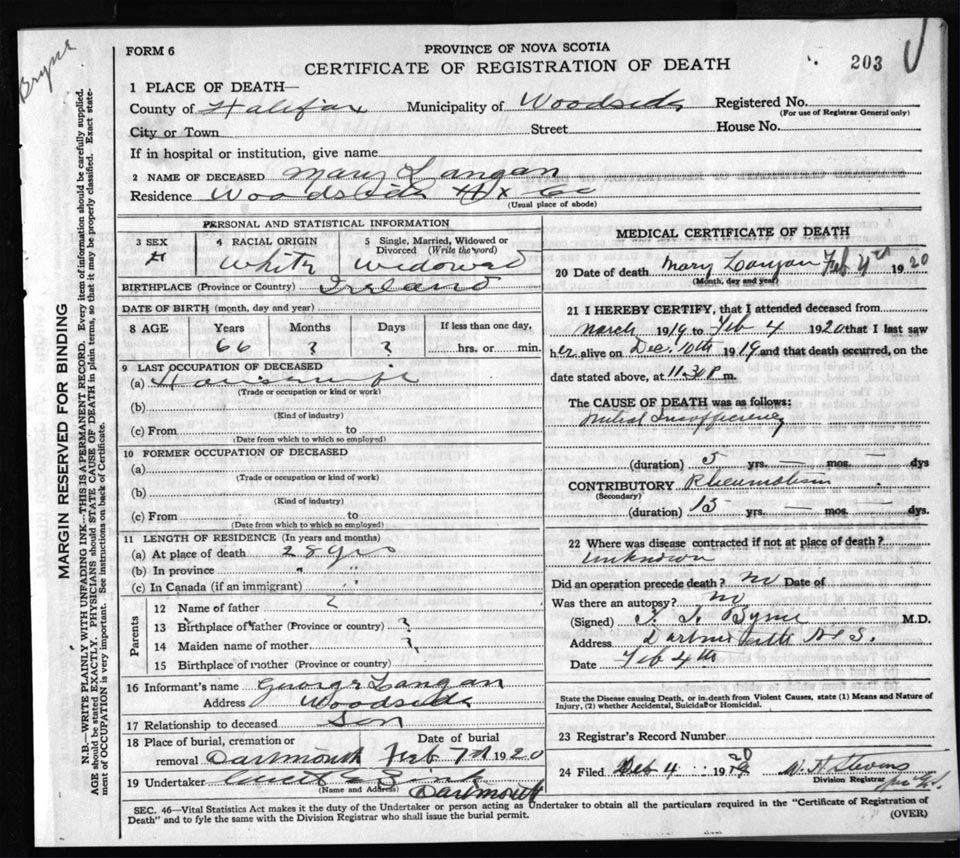 Bryne
FORM 6
PROVINCE OF NOVA SCOTIA
203
CERTIFICATE OF REGISTRATION OF DEATH
1 PLACE OF DEATH—
County of Halifax Municipality of Woodside Registered No.
(For use of Registrar General only)
City or Town Street House No.
If in hospital or institution, give name
2 NAME OF DECEASED Mary Langan
Residence Woodside Hx Co
(Usual place of abode)
PERSONAL AND STATISTICAL INFORMATION
3 SEX 4 RACIAL ORIGIN 5 Single, Married, Widowed or
Divorced (Write the word)
White Widowed
BIRTHPLACE (Province or Country) Ireland
DATE OF BIRTH (month, day and year)
8 AGE Years Months Days If less than one day,
66 ? ? hrs. or min.
9 LAST OCCUPATION OF DECEASED
(a)
(Trade or occupation or kind of work)
(b)
(Kind of industry)
(c) From to
(Date from which to which so employed)
10 FORMER OCCUPATION OF DECEASED
(a)
(Trade or occupation or kind of work)
(b)
(Kind of industry)
(c) From to
(Date from which to which so employed)
11 LENGTH OF RESIDENCE (In years and months)
(a) At place of death 28 yrs
(b) In province "
(c) In Canada (if an immigrant) "
Parents
12 Name of father ?
13 Birthplace of father (Province or country) ?
14 Maiden name of mother ?
15 Birthplace of mother (Province or country)
16 Informant's name George Langan
Address Woodside
17 Relationship to deceased Son
18 Place of burial, cremation or Date of burial
removal Dartmouth Feb 7th 1920
19 Undertaker
(Name and Address) Dartmouth
MEDICAL CERTIFICATE OF DEATH
20 Date of death Mary Langan Feb 4th 1920
(Month, day and year)
21 I HEREBY CERTIFY, that I attended deceased from
March 1919 to Feb 4 1920 that I last saw
her alive on Dec. 10th 1919 and that death occurred, on the
date stated above, at 11.30 P m.
The CAUSE OF DEATH was as follows:
Mitral Insufficiency
(duration) 5 yrs. — mos. — dys
CONTRIBUTORY Rheumatism
(Secondary)
(duration) 15 yrs. — mos. — dys.
22 Where was disease contracted if not at place of death?
Unknown
Did an operation precede death? no Date of
Was there an autopsy? no
(Signed) Byrne M.D.
Address Dartmouth N.S.
Date Feb 4th
State the Disease causing Death, or in death from Violent Causes, state (1) Means and Nature of
Injury, (2) whether Accidental, Suicidal or Homicidal.
23 Registrar's Record Number
24 Filed Feb 4 1920 Stevens
Division Registrar
SEC. 46—Vital Statistics Act makes it the duty of the Undertaker or person acting as Undertaker to obtain all the particulars required in the "Certificate of Registration of
Death" and to fyle the same with the Division Registrar who shall issue the burial permit.
(OVER)
MARGIN RESERVED FOR BINDING
N.B.—WRITE PLAINLY WITH UNFADING INK—THIS IS A PERMANENT RECORD. Every item of information should be carefully supplied.
AGE should be stated EXACTLY. PHYSICIANS should STATE CAUSE OF DEATH in plain terms, so that it may be properly classified. Exact state-
ment of OCCUPATION is very important. See instructions on back of Certificate.